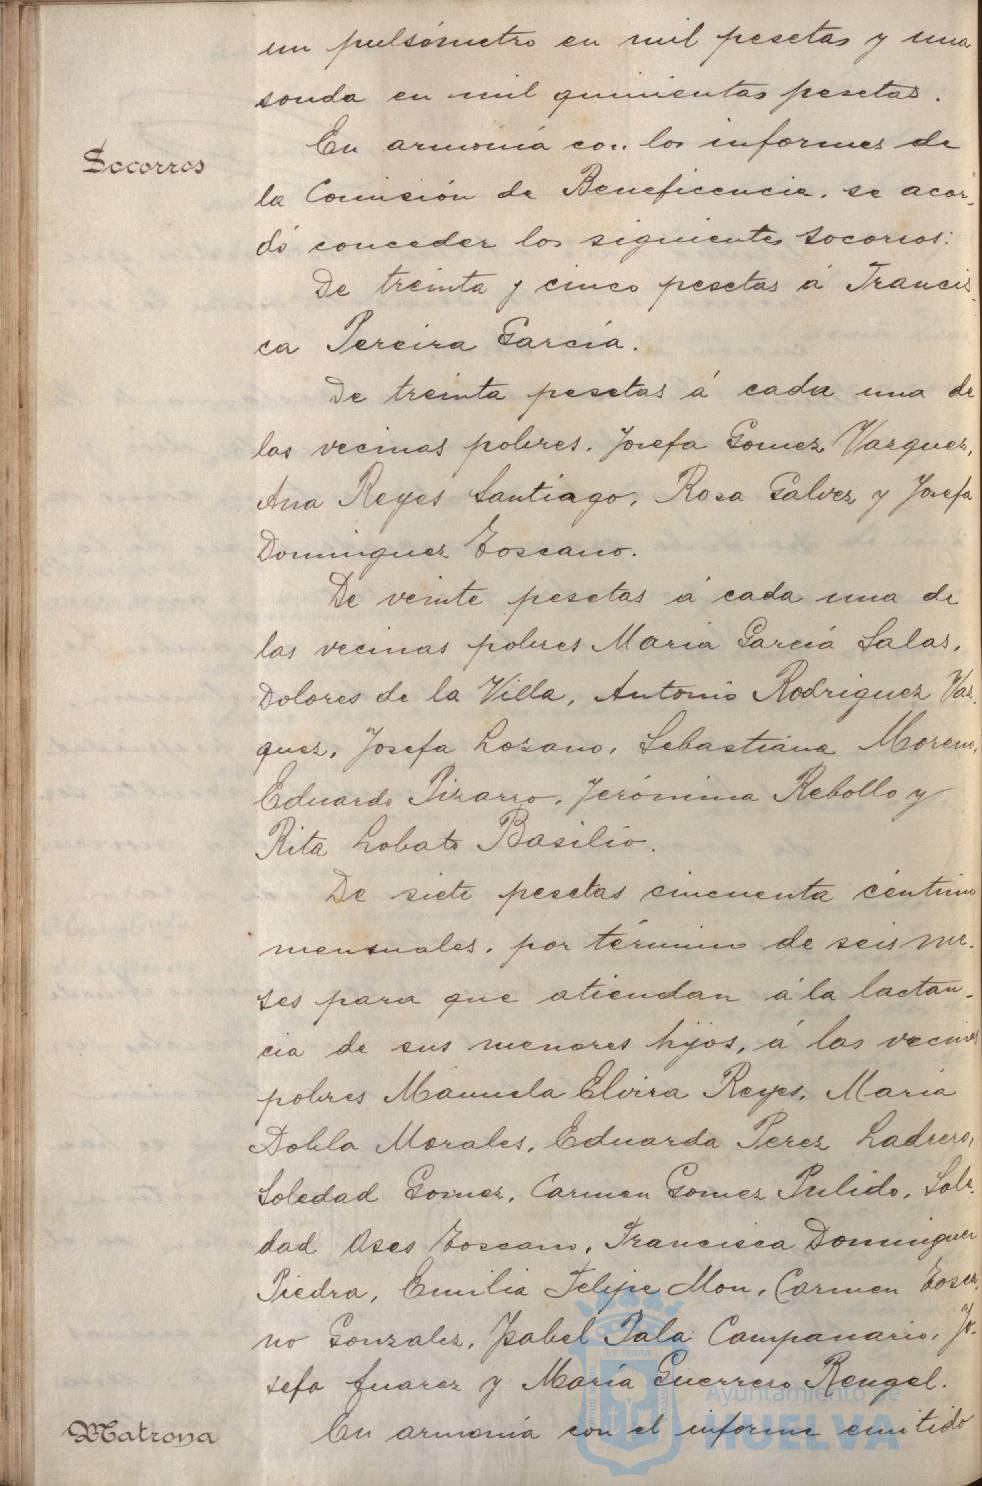 un pulsómetro en mil pesetas y una
sonda en mil quinientas pesetas.
Socorros
En armonía con los informes de
la Comisión de Beneficencia, se acor-
dó conceder los siguientes socorros:
De treinta y cinco pesetas á Francis-
ca Pereira García.
De treinta pesetas á cada una de
las vecinas pobres, Josefa Gomez Vazquez,
Ana Reyes Santiago, Rosa Galvez y Josefa
Dominguez Toscano.
De veinte pesetas á cada una de
las vecinas pobres Maria García Salas,
Dolores de la Villa, Antonio Rodriguez Vaz-
quez, Josefa Lozano, Sebastiana Moreno,
Eduardo Pizarro, Jerónima Rebollo y
Rita Lobato Basilio.
De siete pesetas cincuenta céntimos
mensuales, por término de seis me-
ses para que atiendan á la lactan-
cia de sus menores hijos, á las vecinas
pobres Manuela Elvira Reyes, Maria
Dobla Morales, Eduarda Perez Ladrero,
Soledad Gomez, Carmen Gomez Pulido, Sole-
dad Oses Toscano, Francisca Dominguez
Piedra, Emilia Felipe Mon, Carmen Tosca-
no Gonzalez, Isabel Pala Campanario, Jo-
sefa Juarez y María Guerrero Rengel.
Matrona
En armonía con el informe emitido
Ayuntamiento de
HUELVA